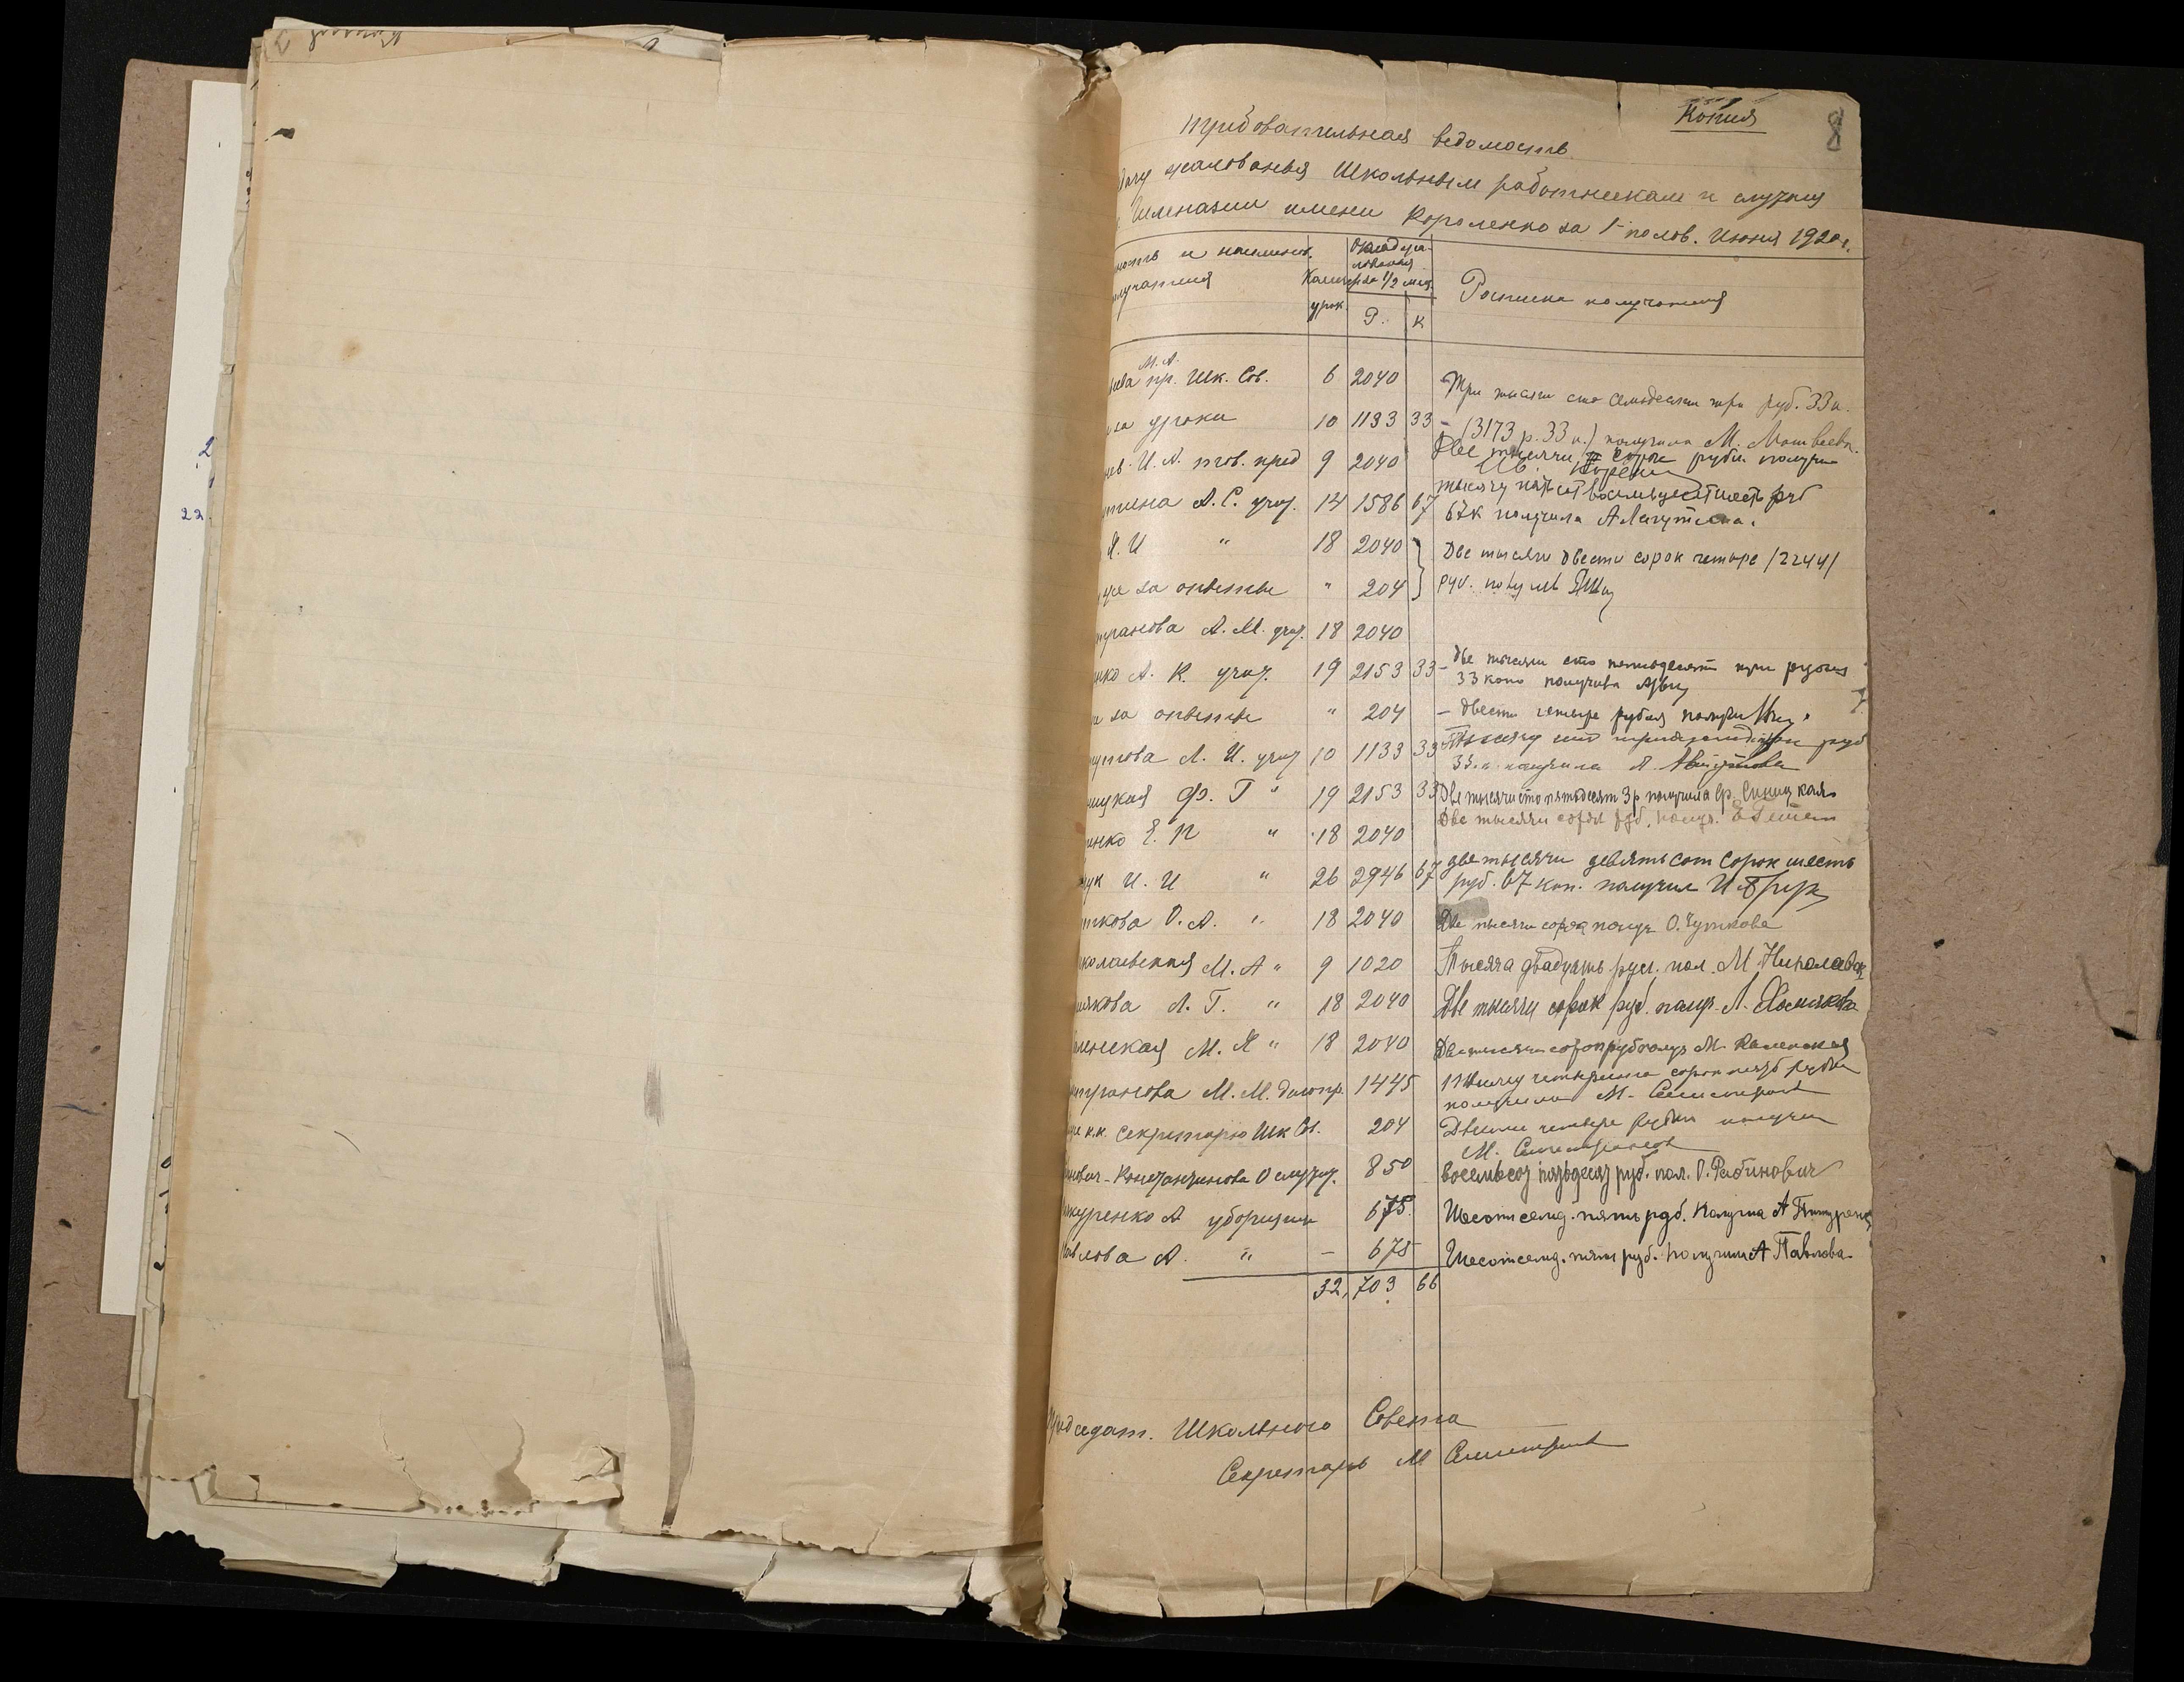 Копия
8
Требовательная ведомость
дачу жалованья Школьным работникам и служащ
Гимназии имени Короленко за 1 полов. Июня 1920 г.
ность и наименов.
получателя
Колич.
урок.
Оклад жа-
лованья
за 1/2 мес.
Р. К
Росписка получателя
М. А.
еева пр. Шк. Сов. 6 2040
Три тысячи сто семьдесят три руб. 33 к.
за уроки 10 1133 33 -
(3173 р. 33 к.) получила М. Матвеева.
ев И. А. тов. пред 9 2040
Две тысячи сорок рубл. получил
тина А. С. учит. 14 1586 67
тысячу пятьсот восемьдесят шесть руб
67 к получила А Лагутина.
Я. И " 18 2040
Две тысячи двести сорок четыре /2244/
же за ответств " 204
руб.
странова А. М. учит. 18 2040
нко А. К. учит. 19 2153 33 -
две тысячи сто пятьдесят три рубля
33 коп получила
за ответств " 204
- двести четыре рубля получил
густова А. И. учит 10 1133 33
Тысячу сто тридцать три руб
33. к. получила А. Августова
ницкая Ф. Г " 19 2153 33
Две тысячи сто пятьдесят 3 р получила Ф. Синицкая
енко Е. П " 18 2040
Две тысячи сорок руб. получ.
ук И. И " 26 2946 67
две тысячи девятьсот сорок шесть
руб. 67 коп. получил И
ткова О. А. " 18 2040
Две тысячи сорок получ О. Чуткова
колаевская М. А " 9 1020
Тысяча двадцать руб. пол. М. Николаевск
мякова Л. Г. " 18 2040
Две тысячи сорок руб. получ. Л. Хомякова
менская М. Я " 18 2040
Две тысячи сорок руб получ М. Каменская
странова М. М. делопр. 1445
Тысячу четыреста сорок пять рублей
получила М. Селистранова
же к.к. Секретарю Шк Сов. 204
Двести четыре рубля получил
М. Селистранова
нович-Константинова О служ. 850
Восемьсот пятьдесят руб. пол. О. Рабинович
журенко А уборщиц 675.
Шесот семд. пять руб. Получила А
авлова А. " - 675
Шесот семд. пять руб. получила А Павлова
32,703 66
Председат. Школьного Совета
Секретарь М Селистранова
2
22